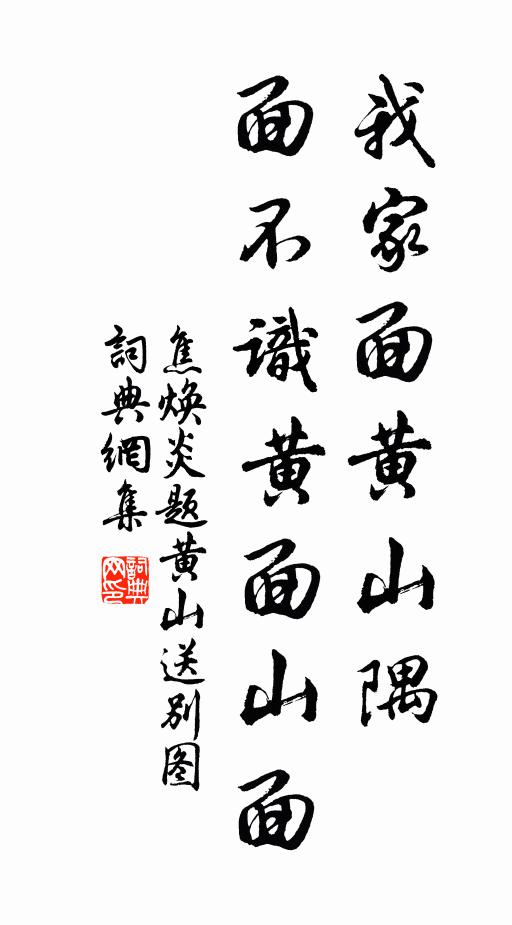 我家面黄山隅
面不識黄面山面
焦焕炎题黄山送别图
詞典網集
詞典網印